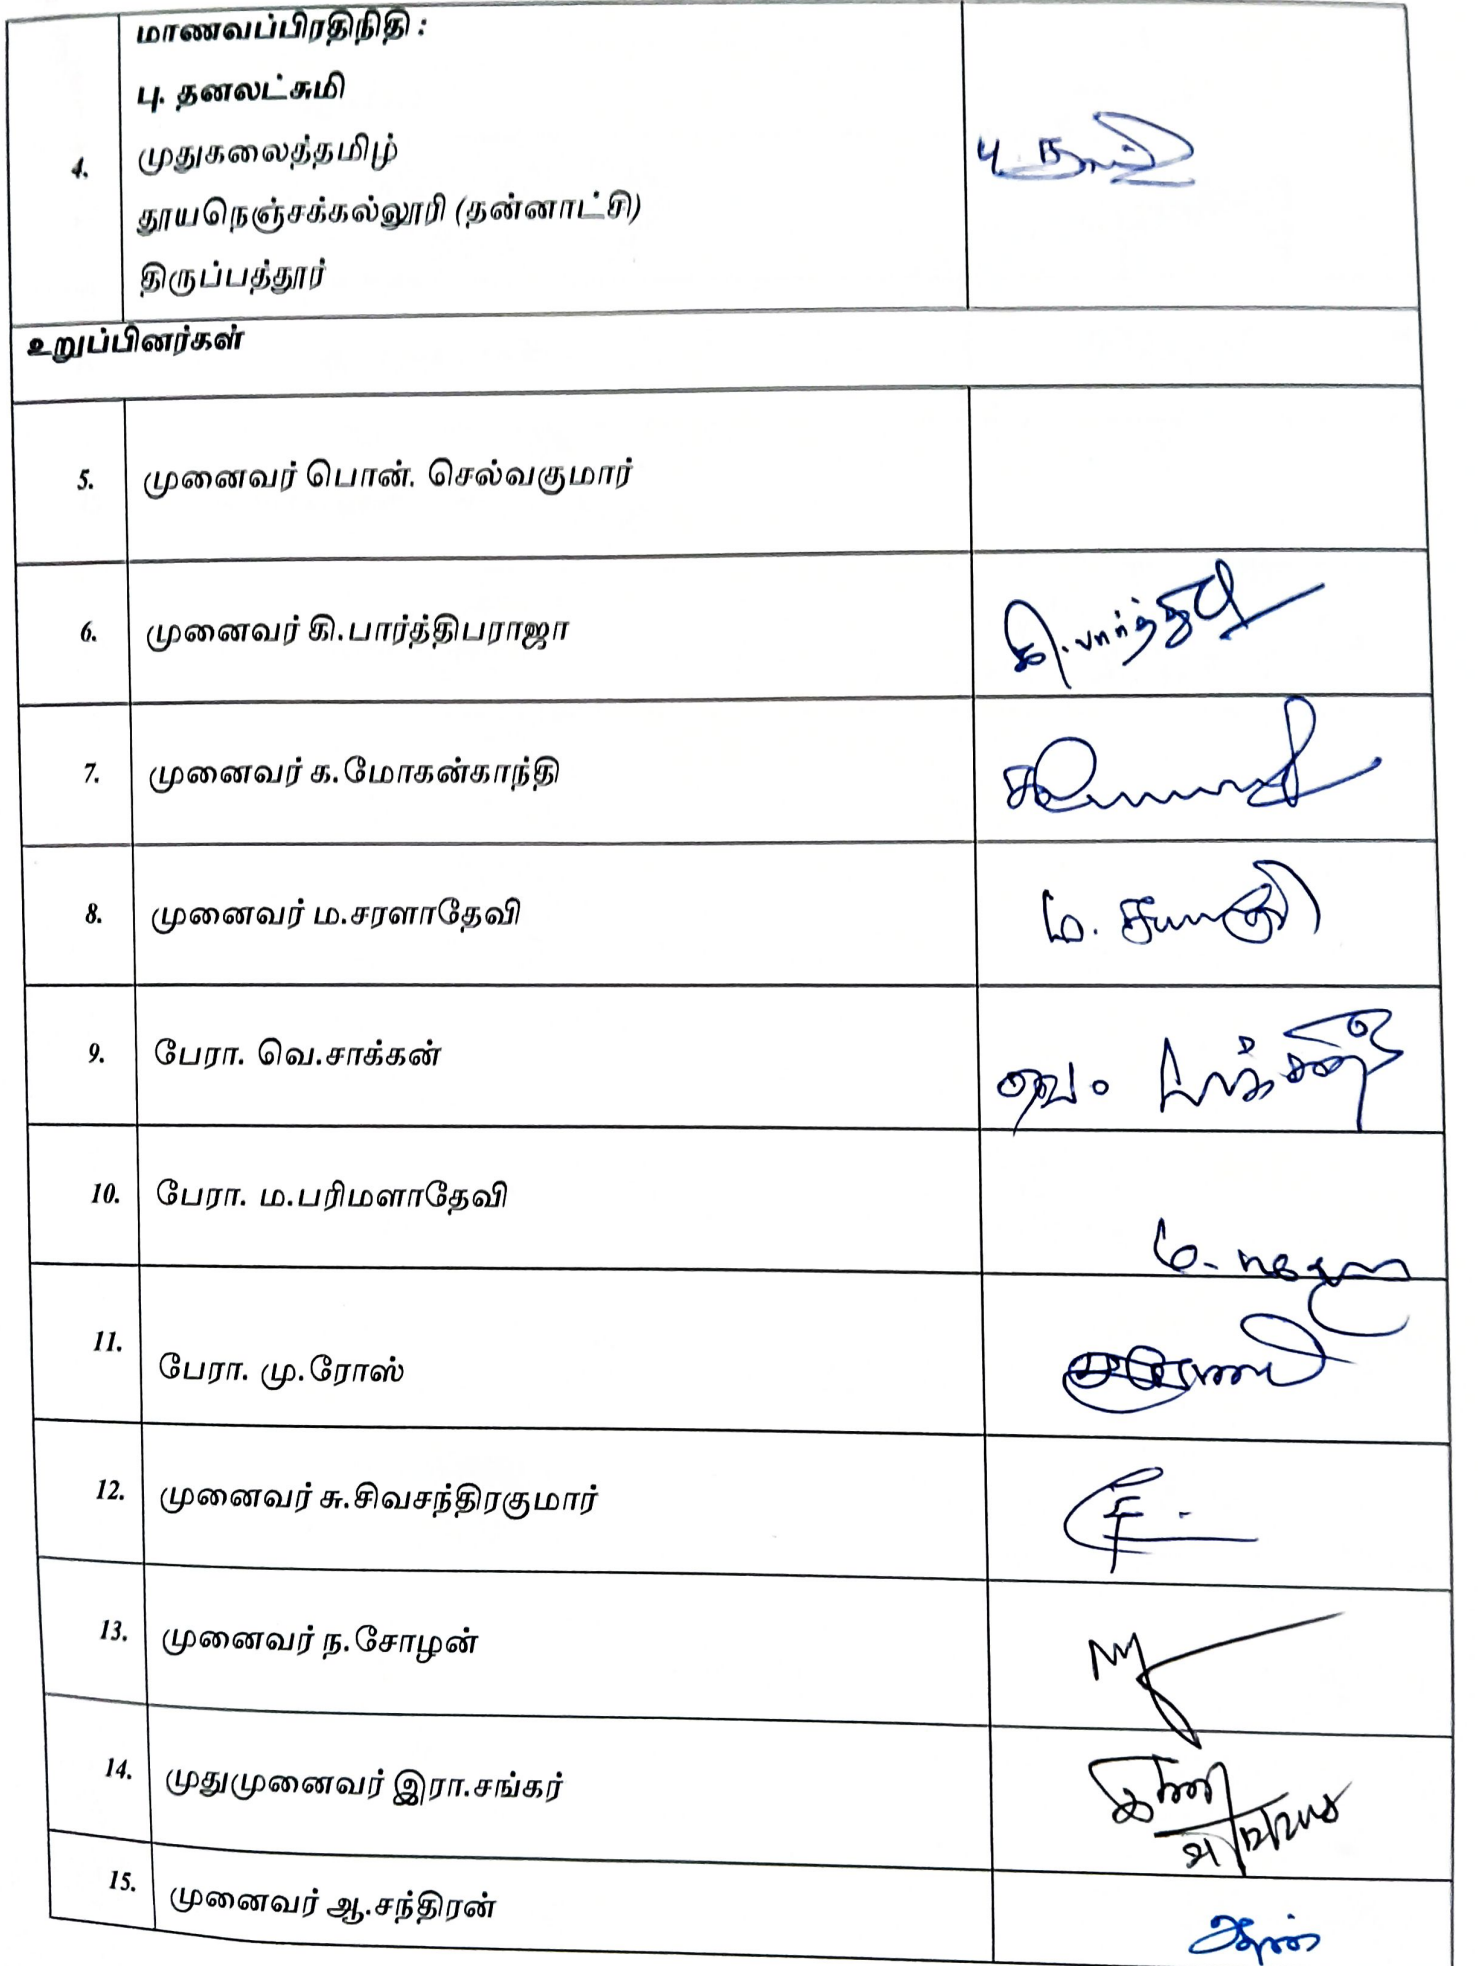 மாணவப்பிரதிநிதி :
பு. தனலட்சுமி
4.
முதுகலைத்தமிழ்
தூயநெஞ்சக்கல்லூரி (தன்னாட்சி)
திருப்பத்தூர்
உறுப்பினர்கள்
5. முனைவர் பொன். செல்வகுமார்
6. முனைவர் கி.பார்த்திபராஜா
7. முனைவர் க.மோகன்காந்தி
8. முனைவர் ம.சரளாதேவி
9. பேரா. வெ.சாக்கன்
10. பேரா. ம.பரிமளாதேவி
11. பேரா. மு.ரோஸ்
12. முனைவர் சு.சிவசந்திரகுமார்
13. முனைவர் ந.சோழன்
14. முதுமுனைவர் இரா.சங்கர்
15. முனைவர் ஆ.சந்திரன்